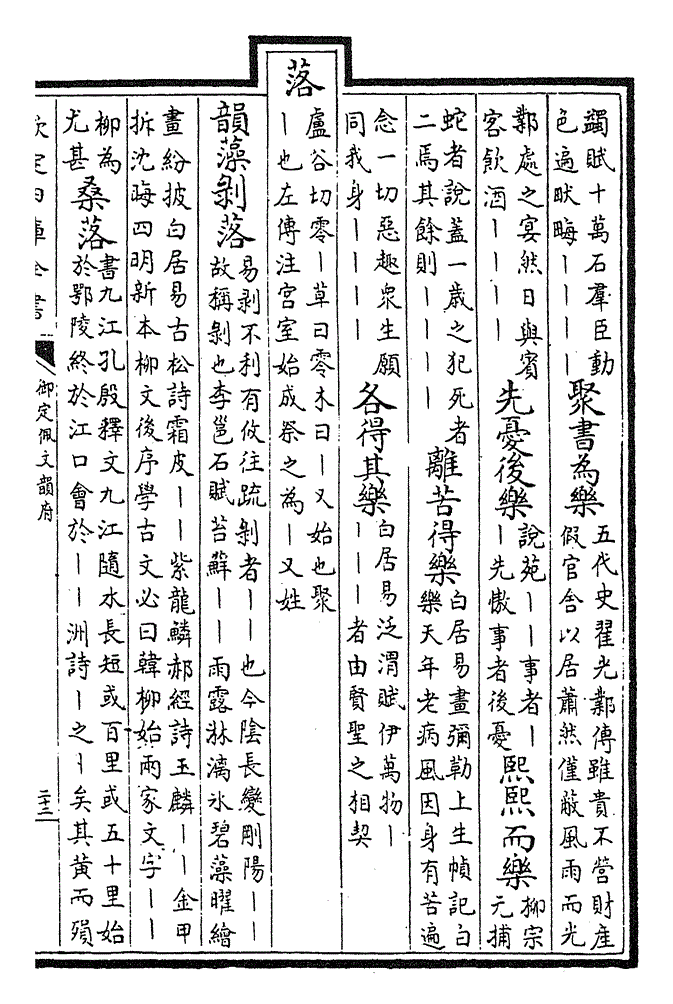 蠲賦十萬石羣臣動
色遍畎畮丨丨丨丨
聚書為樂
五代史翟光鄴傳雖貴不營財產
假官舍以居蕭然僅蔽風雨而光
鄴處之宴然日與賓
客飲酒丨丨丨丨
先憂後樂
說苑丨丨事者丨
丨先傲事者後憂
熙熙而樂
柳宗
元捕
蛇者說蓋一歲之犯死者
二焉其餘則丨丨丨丨
離苦得樂
白居易畫彌勒上生幀記白
樂天年老病風因身有苦遍
念一切惡趣衆生願
同我身丨丨丨丨
各得其樂
白居易泛渭賦伊萬物丨
丨丨丨者由賢聖之相契
落
盧谷切零丨草曰零木曰丨又始也聚
丨也左傳注宮室始成祭之為丨又姓
韻藻剝落
易剝不利有攸往疏剝者丨丨也今陰長變剛陽丨丨
故稱剝也李邕石賦苔蘚丨丨雨露淋漓氷碧藻曜繪
畫紛披白居易古松詩霜皮丨丨紫龍鱗郝經詩玉麟丨丨金甲
拆沈晦四明新本柳文後序學古文必曰韓柳始兩家文字丨丨
柳為
尤甚
桑落
書九江孔殷釋文九江隨水長短或百里或五十里始
於鄂陵終於江口會於丨丨洲詩丨之丨矣其黃而殞
欽定四庫全書
御定佩文韻府
二十三